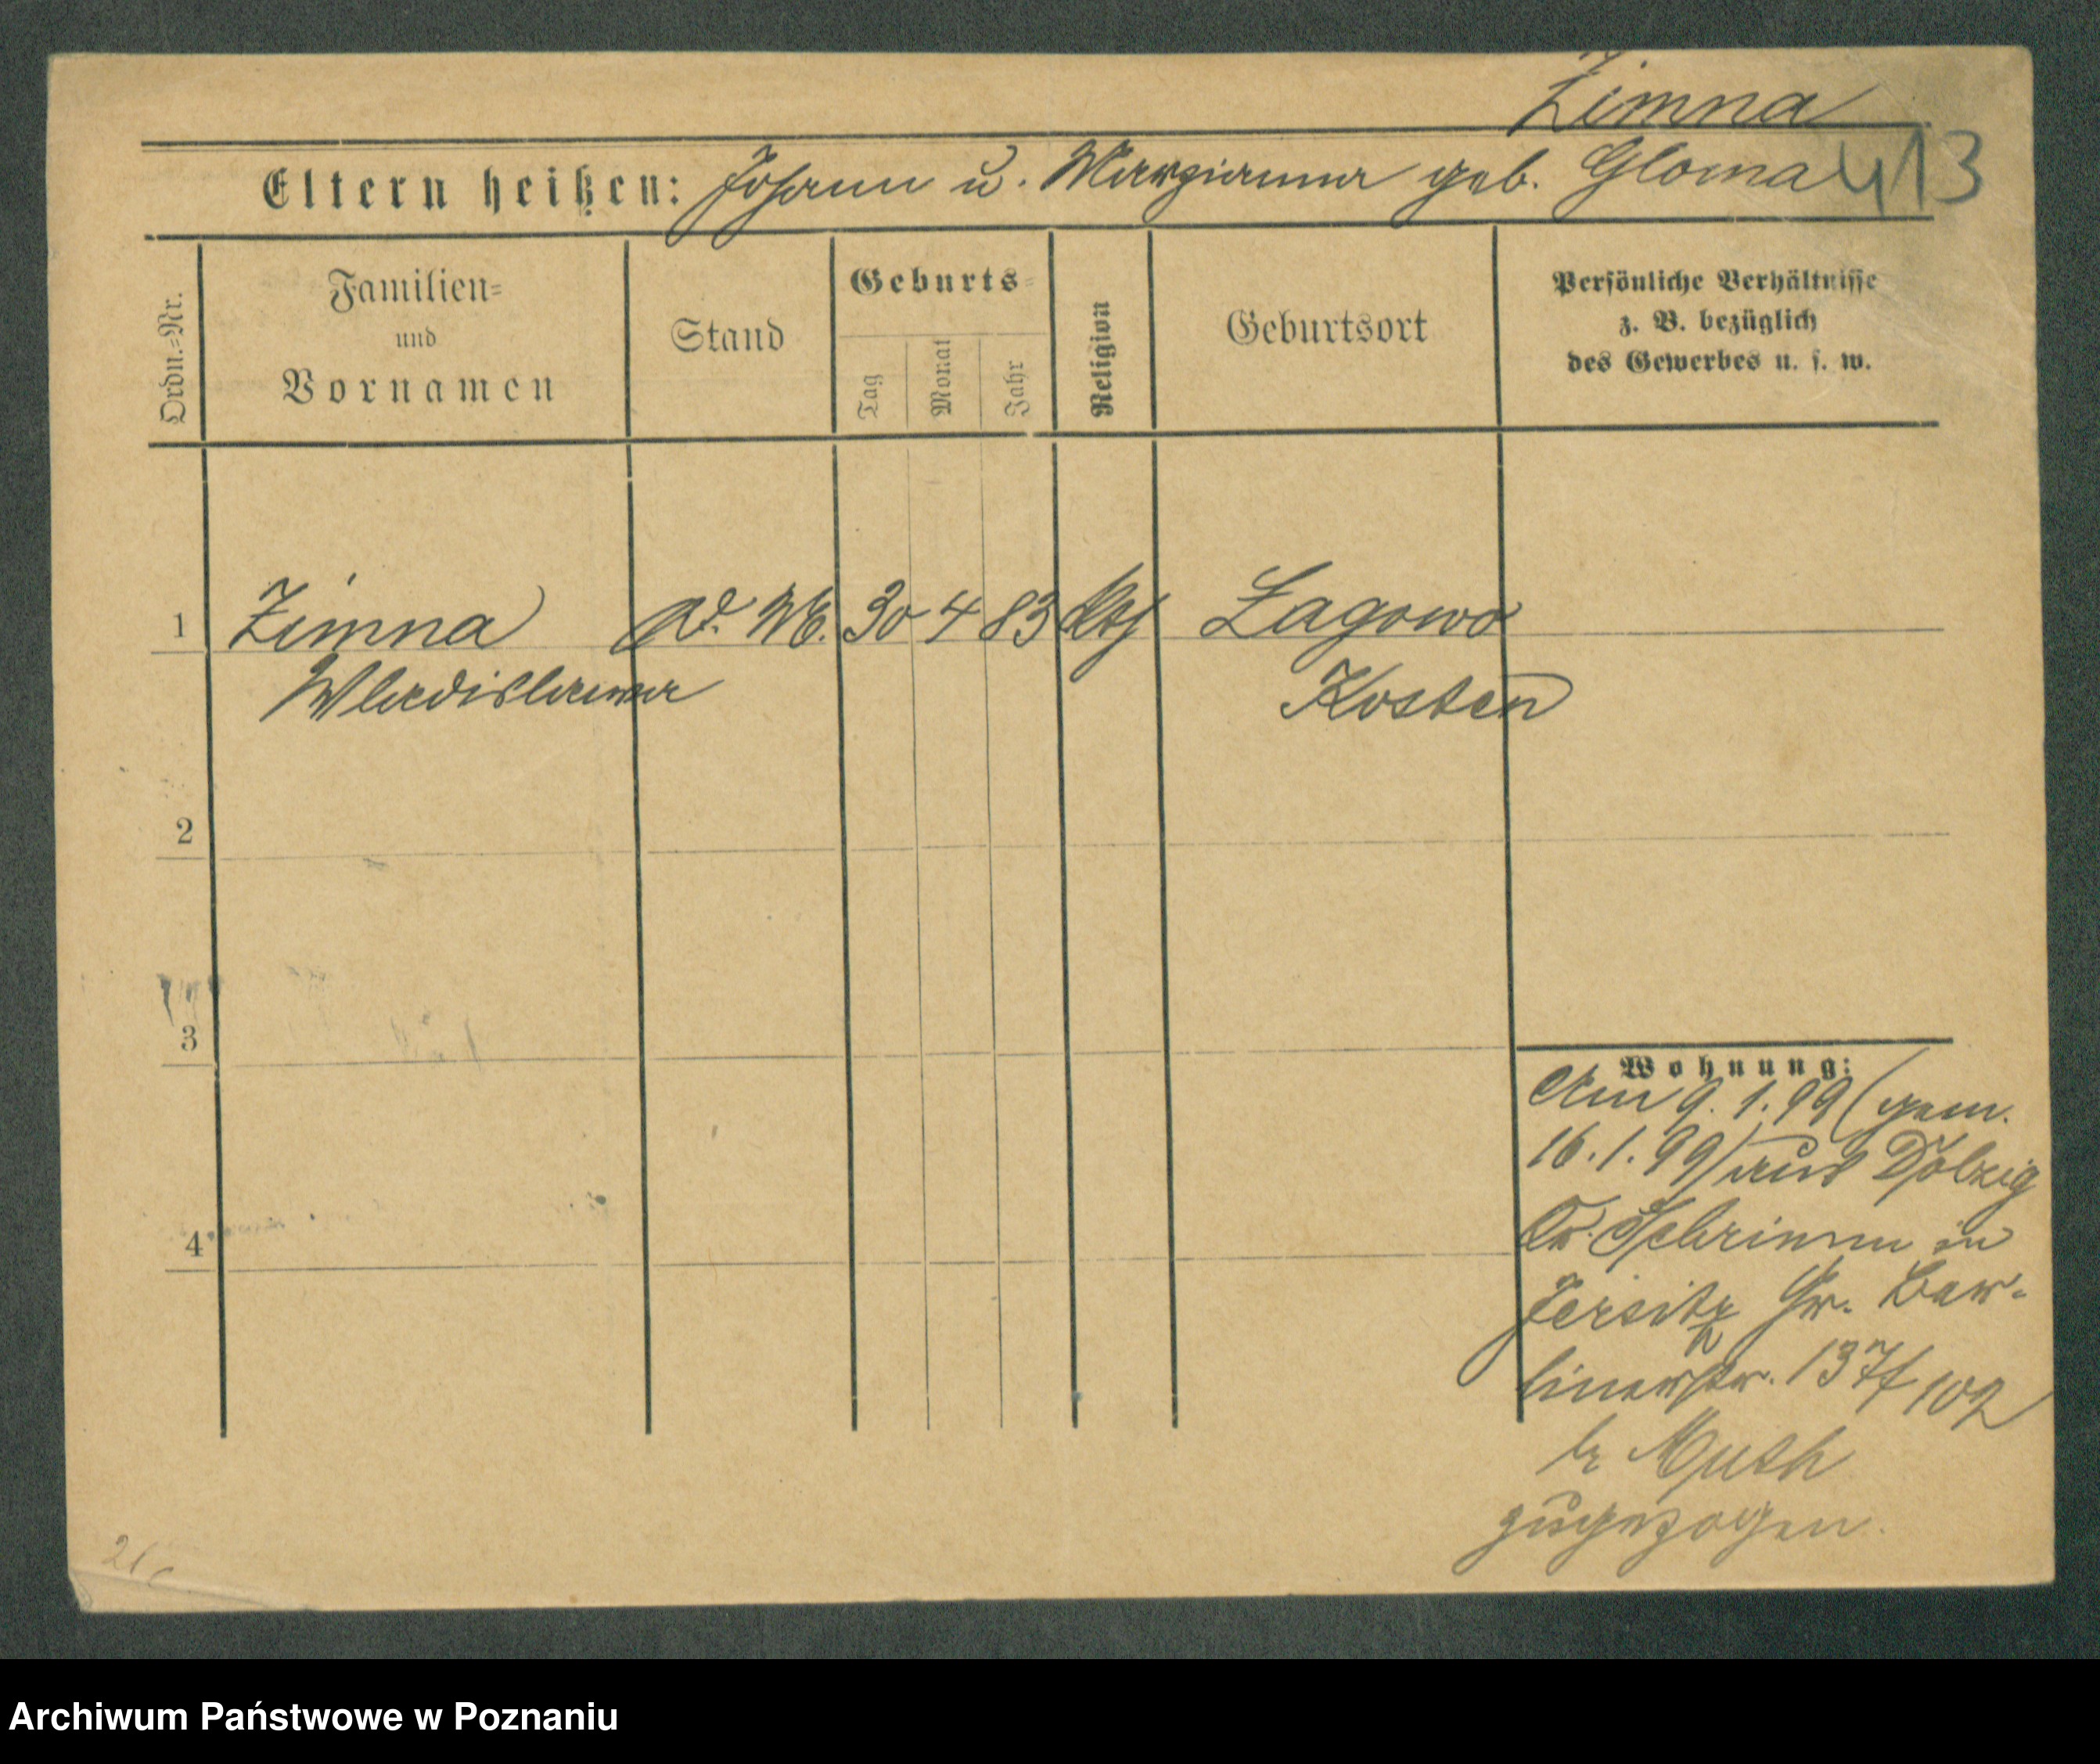 Zimna
Eltern heißen: Johann u. Marzianna geb. Gloma 413
Ordn.=Nr.
Familien=
und
Vornamen
Stand
Geburts=
Tag
Monat
Jahr
Religion
Geburtsort
Persönliche Verhältnisse
z. B. bezüglich
des Gewerbes u. s. w.
1 Zimna 30 4 83 kth Lagowo
Wladislawa Kosten
2
3
4
Wohnung:
Am 9. 1. 99 (gem.
16. 1. 99) aus Dolzig
Kr. Schrimm in
Jersitz Gr. Ber-
linerstr. 137/102
b Muth
zugezogen.
21
Archiwum Państwowe w Poznaniu